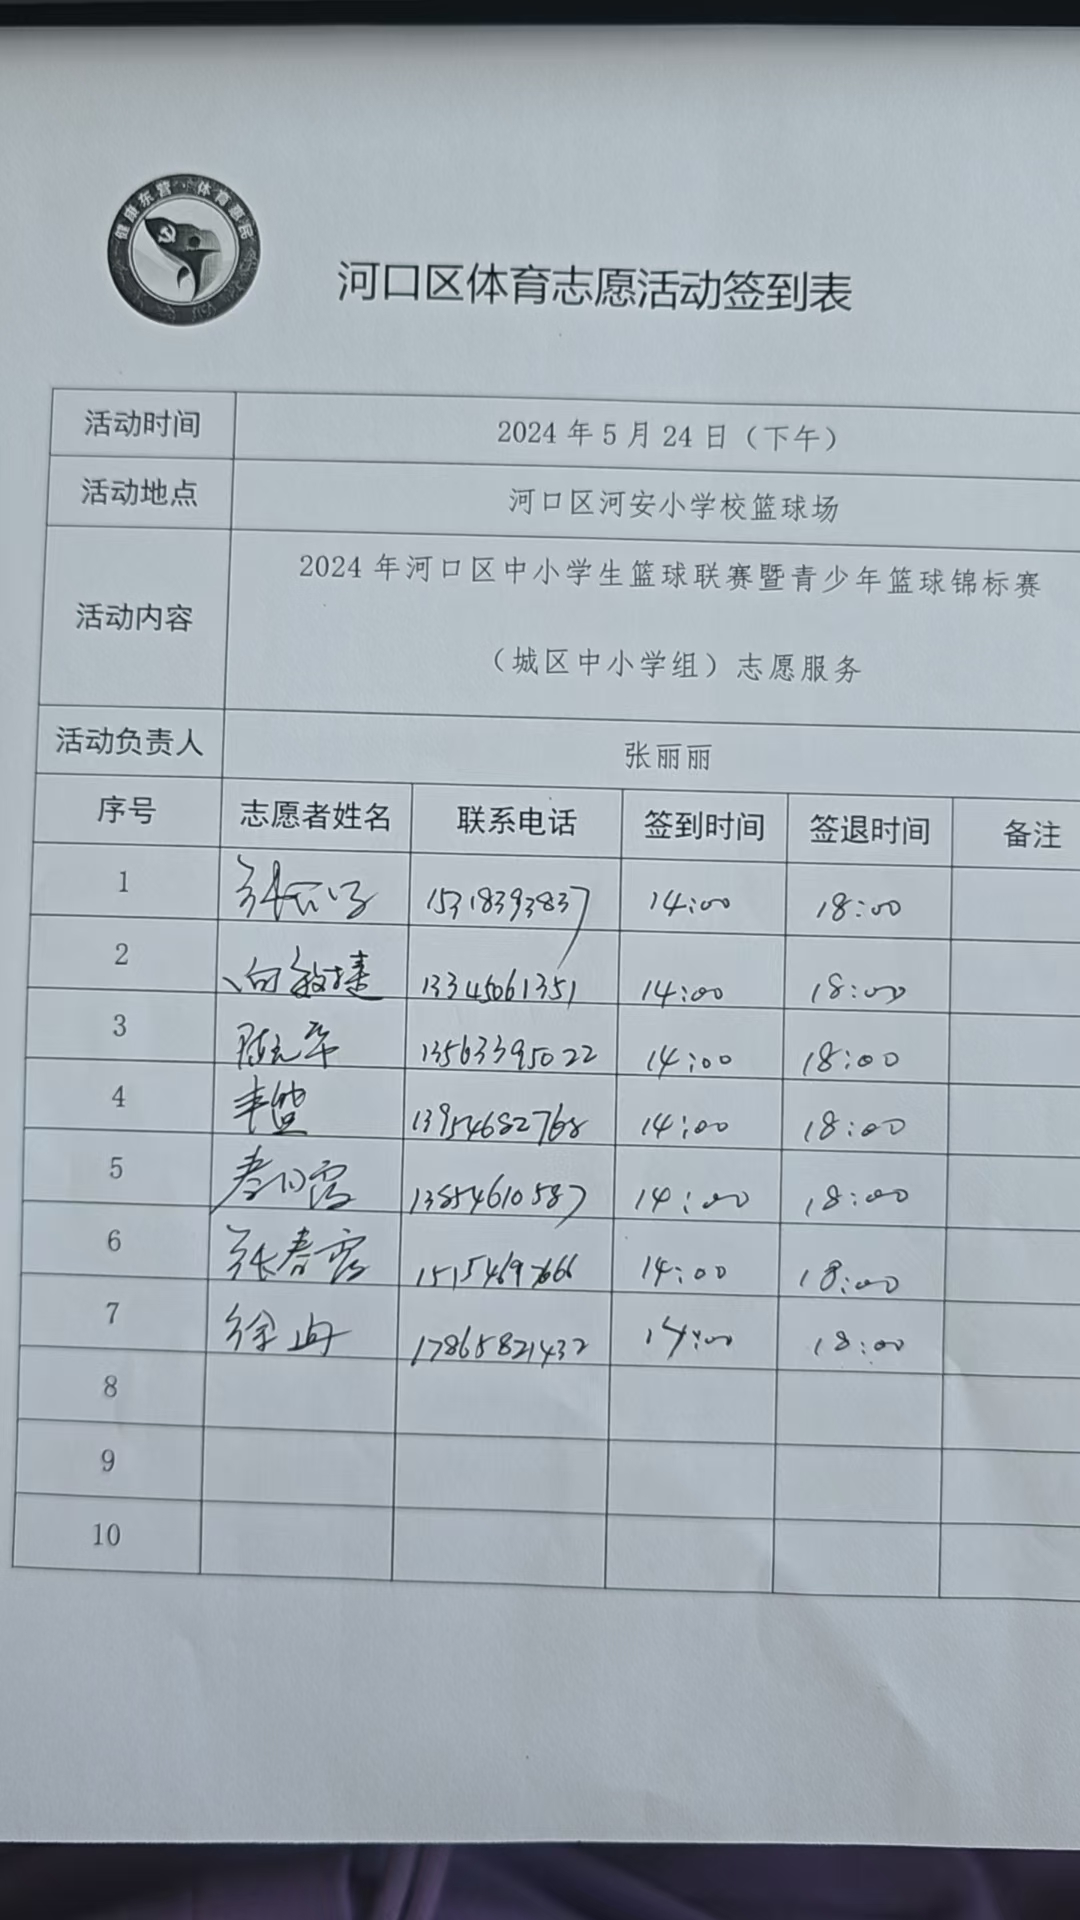 健康东营·体育惠民
河口区体育志愿活动签到表
活动时间 2024年5月24日（下午）
活动地点 河口区河安小学校篮球场
活动内容 2024年河口区中小学生篮球联赛暨青少年篮球锦标赛
（城区中小学组）志愿服务
活动负责人 张丽丽
序号 志愿者姓名 联系电话 签到时间 签退时间 备注
1 15318393837 14:00 18:00
2 向敏捷 13345061351 14:00 18:00
3 13563395022 14:00 18:00
4 13954682768 14:00 18:00
5 13854610587 14:00 18:00
6 张春霞 14:00 18:00
7 徐冉 17865821432 14:00 18:00
8
9
10